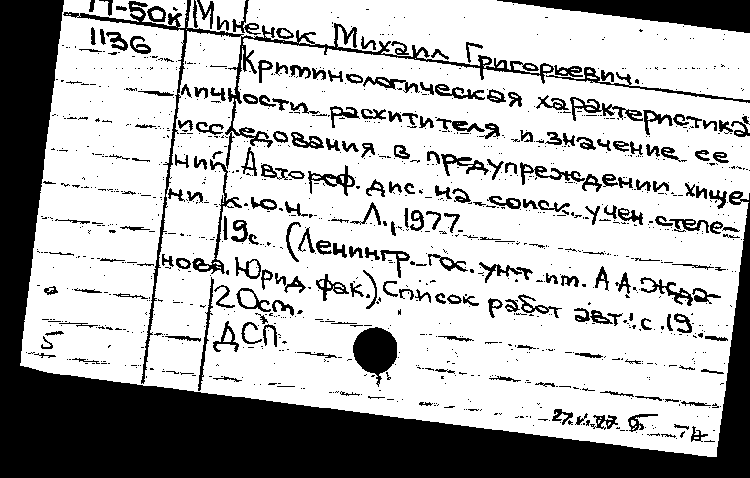 П-50к Миненок, Михаил Григорьевич.
1136 Криминологическая характеристика
личности расхитителя и значение ее
исследования в предупреждении хище-
ний Автореф. дис. на соиск учен степе-
ни к.ю.н. Л., 1977.
19с. (Ленингр. гос. ун-т им. А.А. Жда-
нова. Юрид. фак.) Список работ авт.: с.19.
20ст.
ДСП.
5